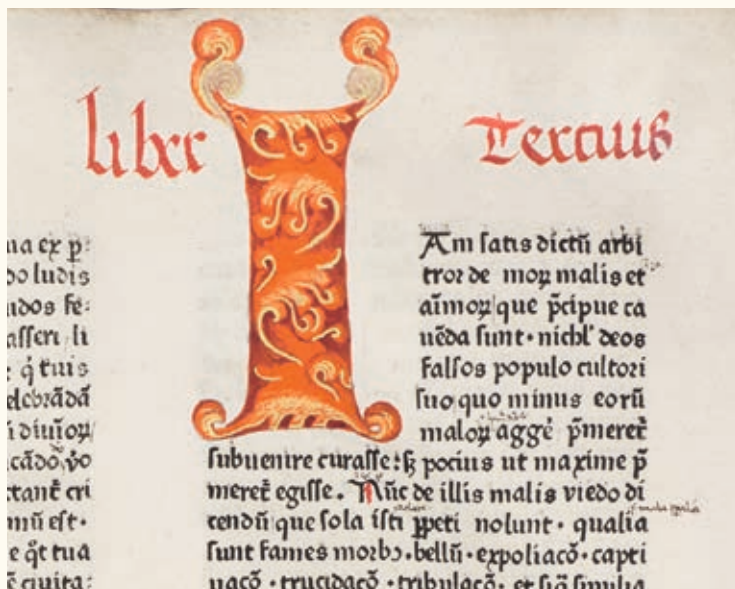 liber Tercius
ex p̱:
ludis
fe:
asseri li
q̇ tuis
cādō
ctant̄ cri
mū est·
e q̇t tua
ciuita:
IAm satis dictū arbi
tror de moꝝ malis et
aīmoꝝ que p̄cipue ca
uēda sunt· nichl' deos
falsos populo cultori
suo quo minus eorū
maloꝝ aggē p̄meret̄
subuenire curasse: sꝫ pocius ut maxime p̄
meret̄ egisse. Nūc de illis malis viedo di
cendū que sola isti ꝑpeti nolunt· qualia
sunt fames morbꝰ. bellū· expoliacō· capti
uacō· trucidacō· tribulacō· et siq̄ similia